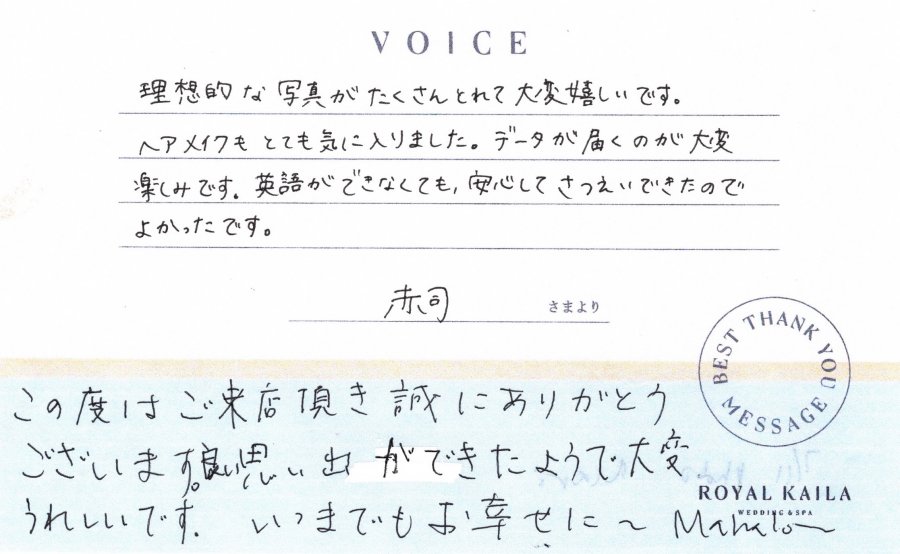 VOICE
理想的な写真がたくさんとれて大変嬉しいです。
ヘアメイクもとても気に入りました。データが届くのが大変
楽しみです。英語ができなくても、安心してさつえいできたので
よかったです。
赤司 さまより
BEST THANK YOU MESSAGE
この度はご来店頂き誠にありがとう
ございます。良い思い出ができたようで大変
うれしいです。いつまでもお幸せに〜 Mahalo〜
ROYAL KAILA
WEDDING & SPA